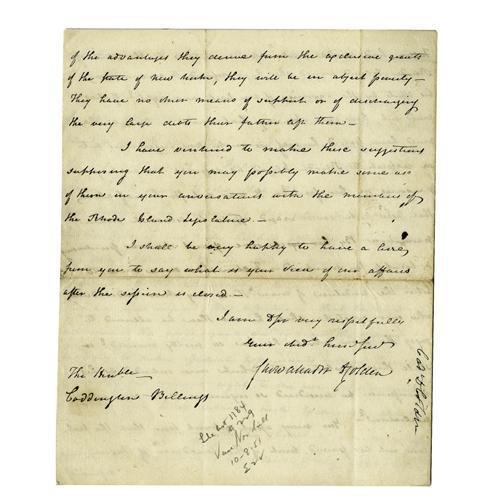 of the advantages they derive from the exclusive grants
of the State of New York, they will be in abject poverty—
They have no other means of support or of discharging
the very large debts their father left them—
I have ventured to make these suggestions
supposing that you may possibly make some use
of them in your conversations with the members of
the Rhode Island Legislature.—
I shall be very happy to have a line
from you to say what is your view of our affairs
after the session is closed—
I am Dr Sir very respectfully
your Obdt humb Servt
Cadwallader D Colden
The Honble
Coddington Billings
1184
Van
10-8-51